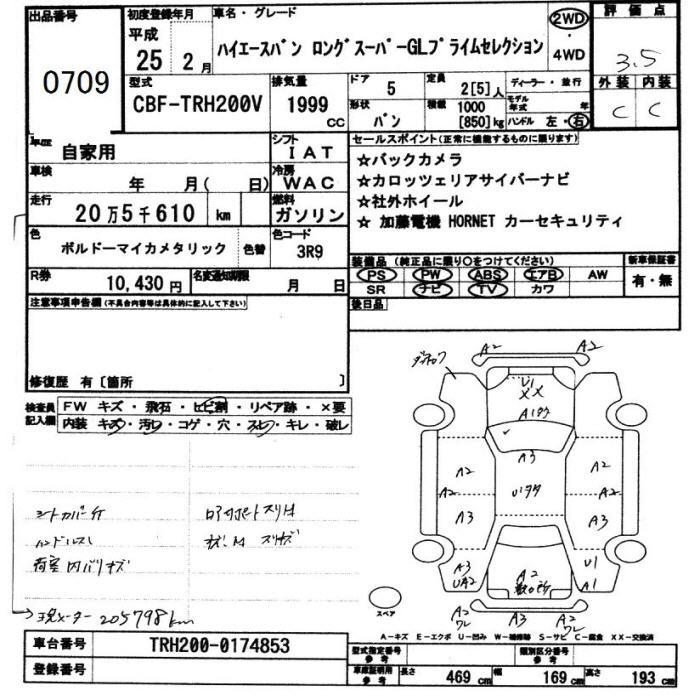 出品番号
0709
初度登録年月
平成
25 2月
車名・グレード
ハイエースバン ロングスーパーGLプライムセレクション
2WD
4WD
評価点
3.5
外装 内装
C C
型式
CBF-TRH200V
排気量
1999 cc
ドア 5
定員 2[5]人
ディーラー・並行
形状 バン
積載 1000 [850]kg
モデル年式 年
ハンドル 左・右
車歴 自家用
シフト IAT
車検 年 月( 日)
冷房 WAC
走行 20万5千610 km
燃料 ガソリン
色 ボルドーマイカメタリック 色替
色コード 3R9
R券 10,430円
名変通知期限 月 日
セールスポイント(正常に機能するものに限ります)
☆バックカメラ
☆カロッツェリアサイバーナビ
☆社外ホイール
☆ 加藤電機 HORNET カーセキュリティ
装備品(純正品に限り○をつけてください)
新車保証書
PS PW ABS エアB AW
SR ナビ TV カワ
有・無
後日品
注意事項申告欄(不具合内容等は具体的に記入して下さい)
修復歴 有〔箇所 〕
検査員記入欄
FW キズ・飛石・ヒビ割・リペア跡・×要
内装 キズ・汚レ・コゲ・穴・スレ・キレ・破レ
シートカバー付
ハンドルスレ
荷室内バリキズ
→現メーター 205798km
A2 A2
U1
XX
A1タタ
A3
A2 A2
A2 U1タタ A2
A3 A3
A3 U1
UA2 A2 A1
A2 A3 A2
ワレ ワレ
スペア
A-キズ E-エクボ U-凹み W-補修跡 S-サビ C-腐食 XX-交換済
車台番号 TRH200-0174853
登録番号
型式指定番号 参考
類別区分番号 参考
車庫証明用 参考 長さ 469 cm 幅 169 cm 高さ 193 cm